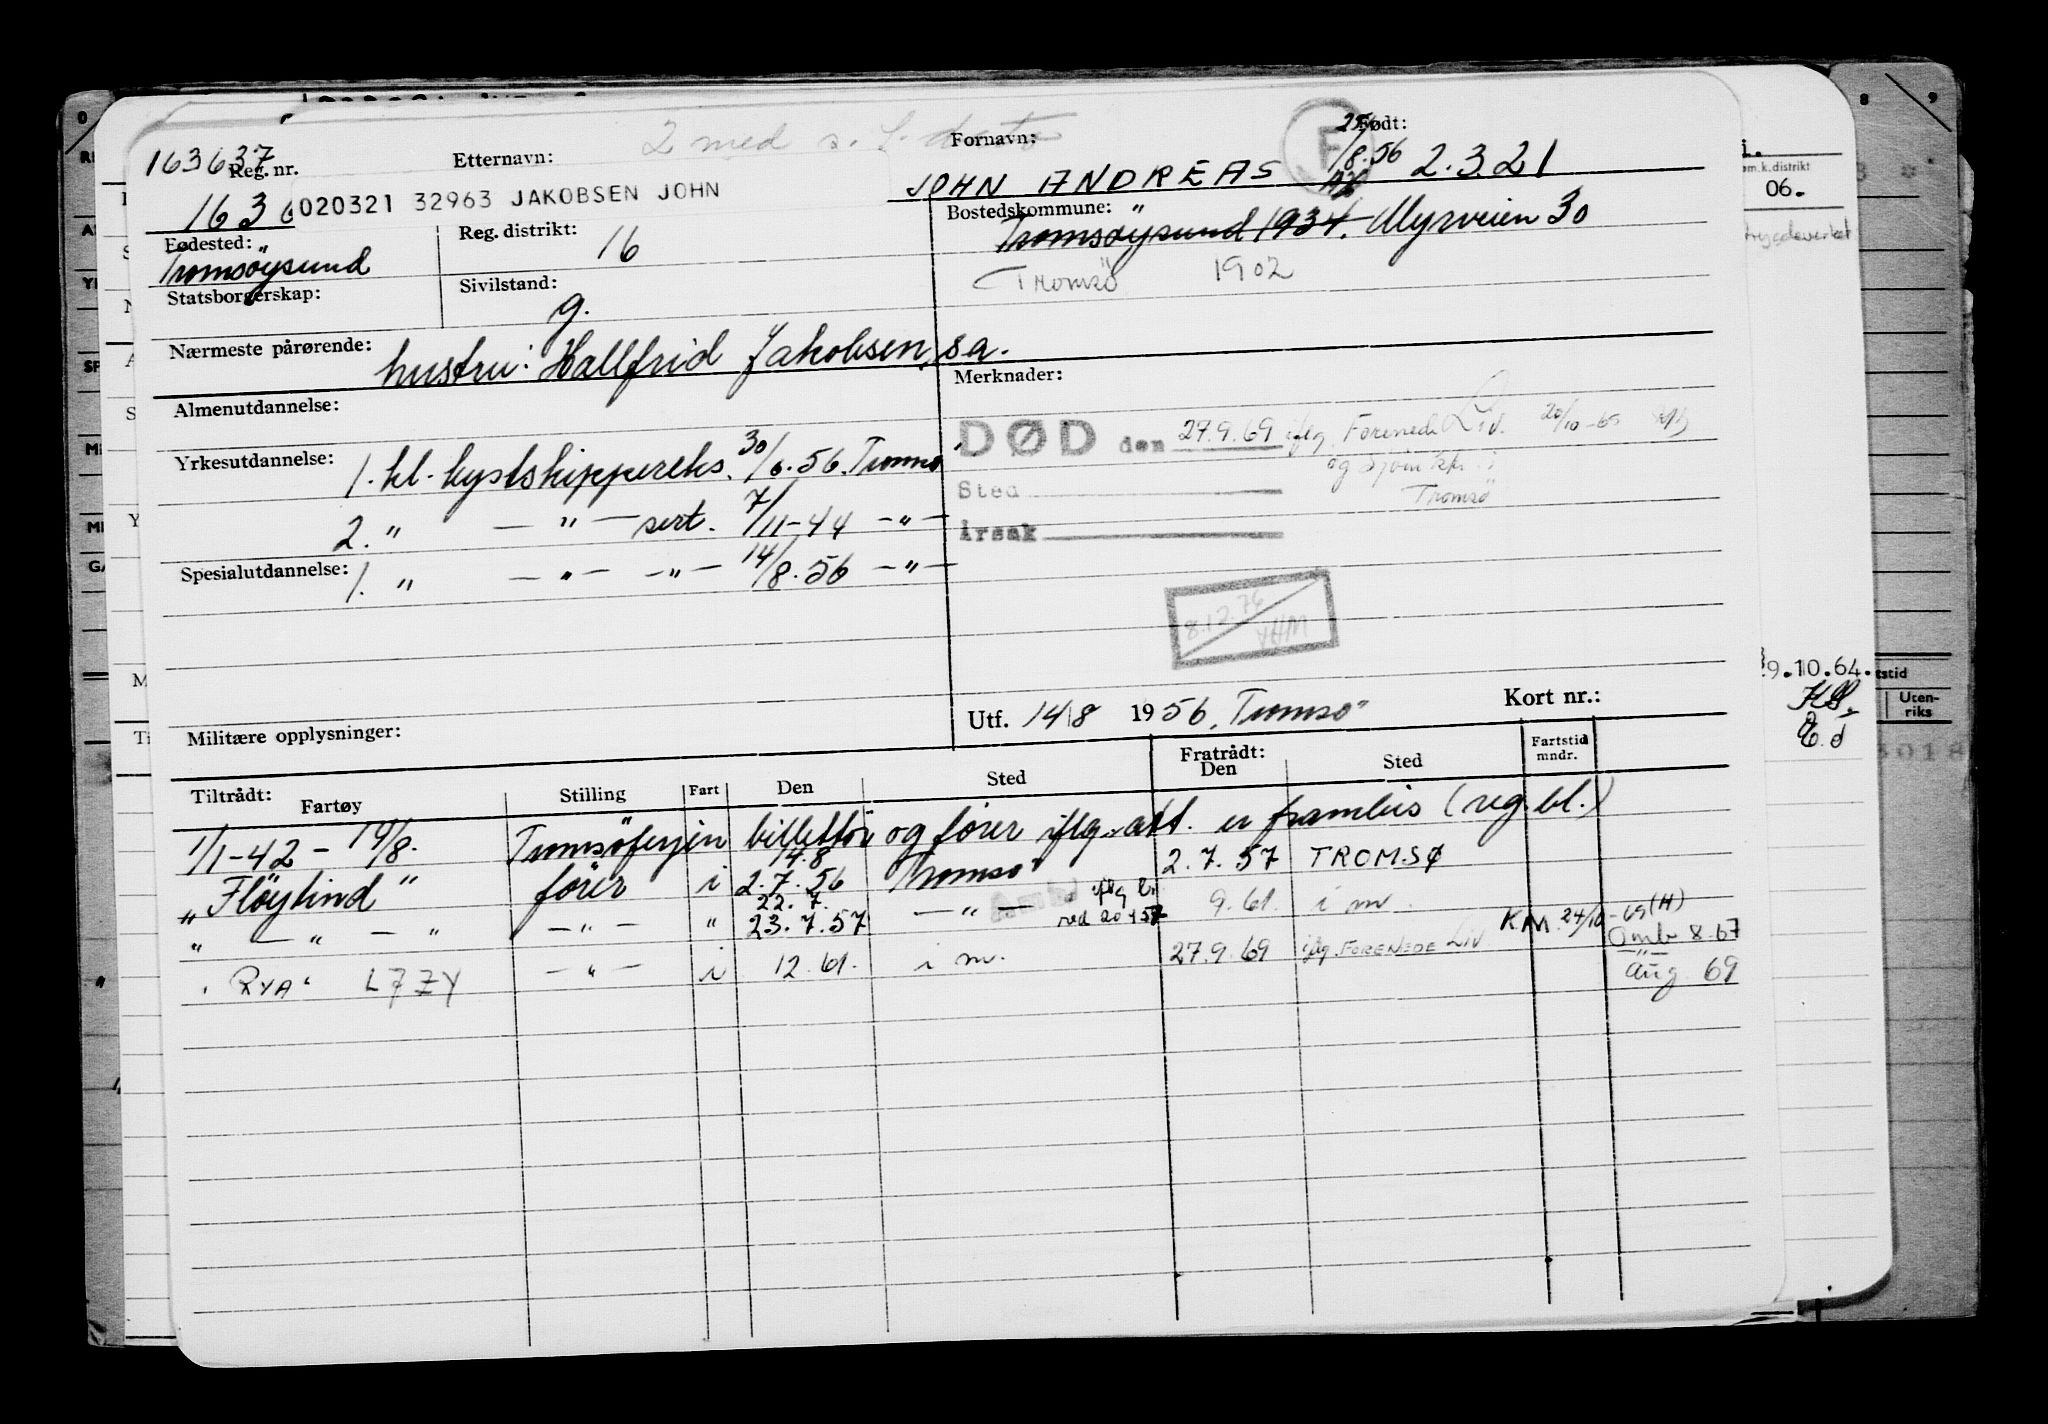 2 med s.
163637
Reg. nr.
Etternavn:
Fornavn:
Født:
F
25/8.56
163
020321 32963 JAKOBSEN JOHN
JOHN ANDREAS
2.3.21
Fødested:
Tromsöysund
Reg. distrikt:
16
Bostedskommune:
Tromsöysund 1934. Myrveien 30
Tromsö 1902
Statsborgerskap:
Sivilstand:
g.
Nærmeste pårørende:
hustru: Hallfrid Jakobsen, sa.
Almenutdannelse:
Merknader:
DØD den 27.9.69 iflg. Forenede Liv. 20/10-69
og Sjøm.ktr. i
Tromsö
Sted
Årsak
Yrkesutdannelse:
1. kl. kystskippereks. 30/6.56. Tromsø
2. " — " — sert. 7/11-44 — " —
Spesialutdannelse:
1. " — " — — " — 14/8.56 — " —
8.12.76
Militære opplysninger:
Utf. 14/8 1956, Tromsö
Kort nr.:
Tiltrådt:
Fartøy
Stilling
Fart
Den
Sted
Fratrådt:
Den
Sted
Fartstid
mndr.
1/1-42 - 14/8. Tromsöferjen billettör og förer iflg. att. er framlus (reg.bl.)
14.8
"Flöytind" förer i 2.7.56 Tromsö 2.7.57 TROMSØ
22.7.
" — " — " — " — " 23.7.57 — " — iflg 9.61. i m.
K.M. 24/10-69 (H)
"RYA" LFZY — " — i 12.61. i m. 27.9.69 iflg. FORENEDE Liv
Omb 8.67
— " —
Aug. 69
m.k.distrikt
06.
9.10.64.
Fartstid
Uten-
riks
8 9
0